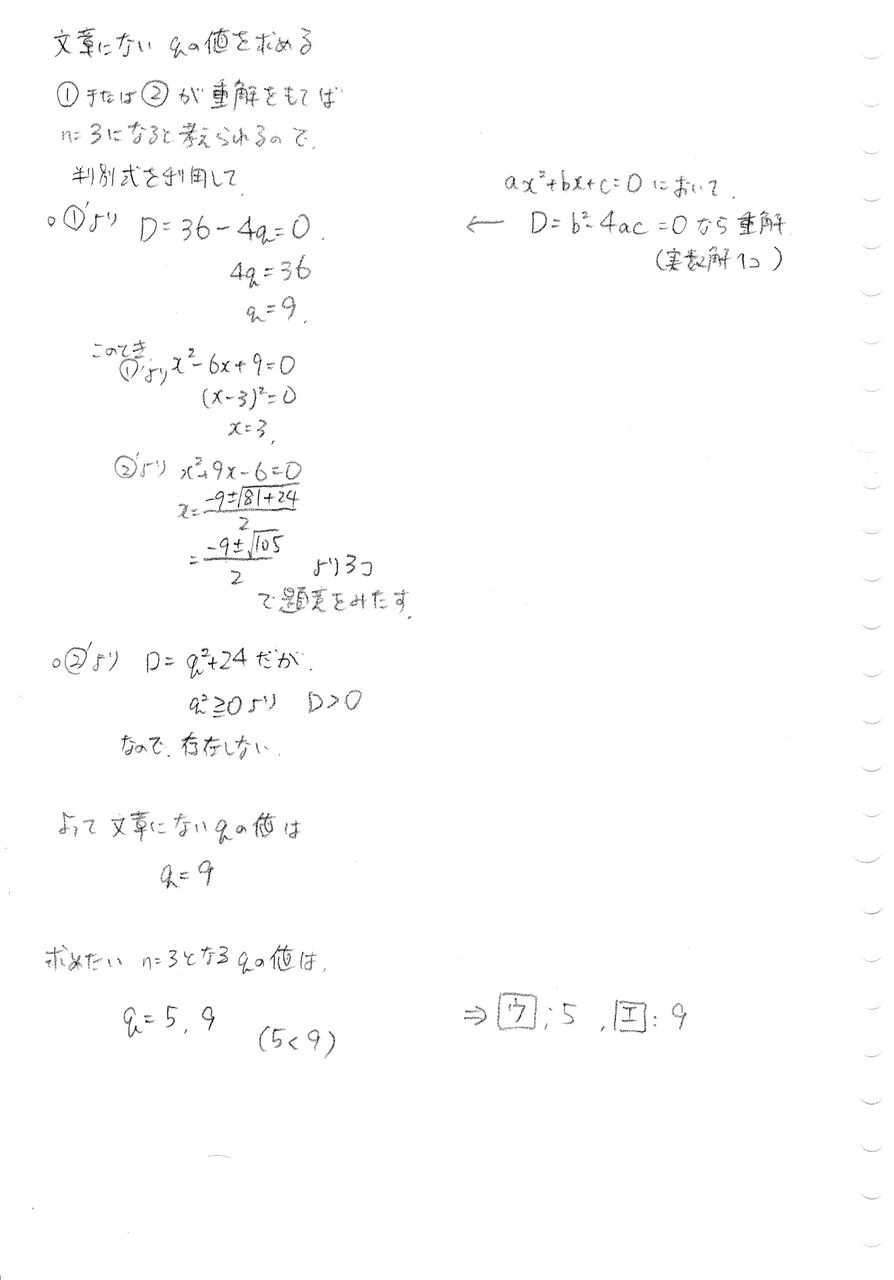 文章にない qの値を求める
①または②が重解をもてば
n=3になると考えられるので、
判別式を利用して
ax²+bx+c=0において、
○①'より D=36-4q=0.
← D=b²-4ac=0なら重解
(実数解1コ)
4q=36
q=9.
このとき
①'より x²-6x+9=0
(x-3)²=0
x=3,
②'より x²+9x-6=0
x=\frac{-9±√81+24}{2}
=\frac{-9±√105}{2} より3コ
で題意をみたす.
○②'より D=q²+24だが、
q²≧0より D>0
なので、存在しない.
よって文章にないqの値は
q=9
求めたい n=3となるqの値は、
q=5, 9 (5<9)
⇒ ウ:5 , エ:9